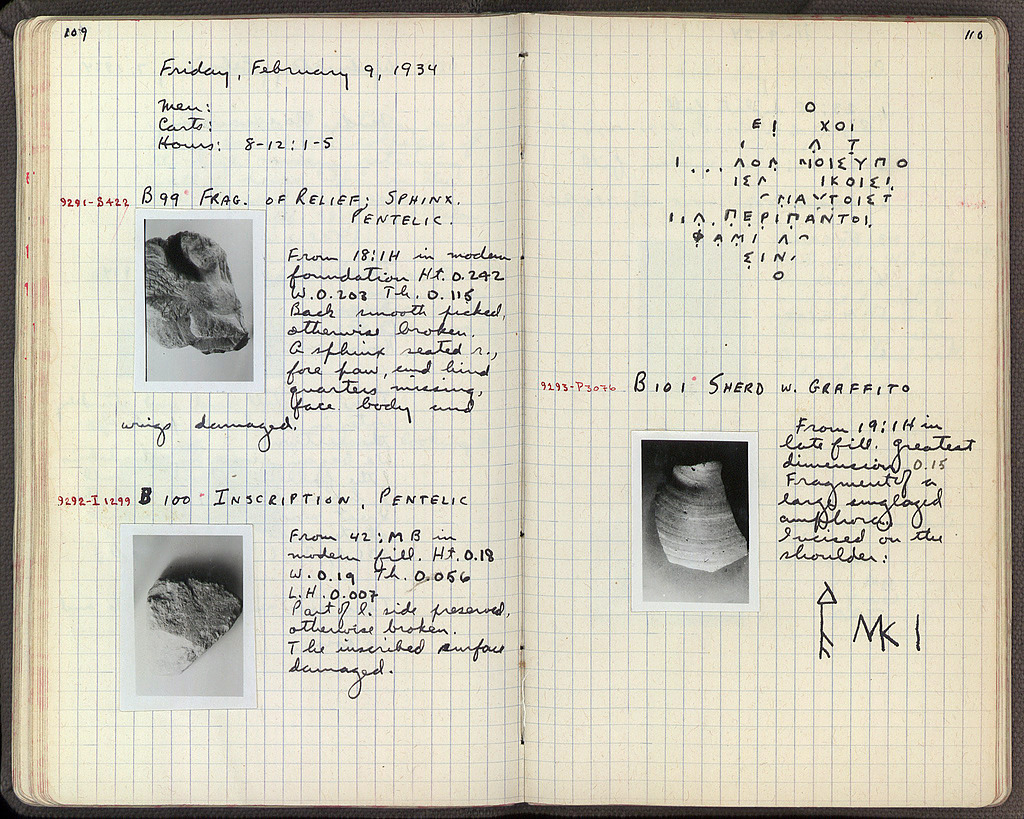 109
Friday, February 9, 1934
Men:
Carts:
Hours: 8-12: 1-5
9291-S422 B99 FRAG. OF RELIEF; SPHINX.
PENTELIC.
From 18:1H in modern
foundation Ht. 0.242
W. 0.203 Th. 0.115
Back smooth picked,
otherwise broken.
A sphinx seated r.,
fore paw, and hind
quarters missing,
face body and
wings damaged.
9292-I 1299 B 100 INSCRIPTION, PENTELIC
From 42:MB in
modern fill. Ht. 0.18
W. 0.19 Th. 0.056
L.H. 0.007
Part of l. side preserved,
otherwise broken.
The inscribed surface
damaged.
110
Ο
ΕΙ ΧΟΙ
Ι Λ Τ
Ι ... ΛΟΛ ΝΟΙΣΥΠΟ
ΙΣΛ ΙΚΟΙΣΙ
ΠΑΥΤΟΙΣΤ
ΠΕΡΙΠΑΝΤΟΙ
ΦΑΜΙ Λ
ΣΙΝ
Ο
9293-P3076 B101 SHERD W. GRAFFITO
From 19:1H in
late fill. Greatest
dimension 0.15
Fragment of a
large unglazed
amphora.
Incised on the
shoulder:
ΜΚ Ι